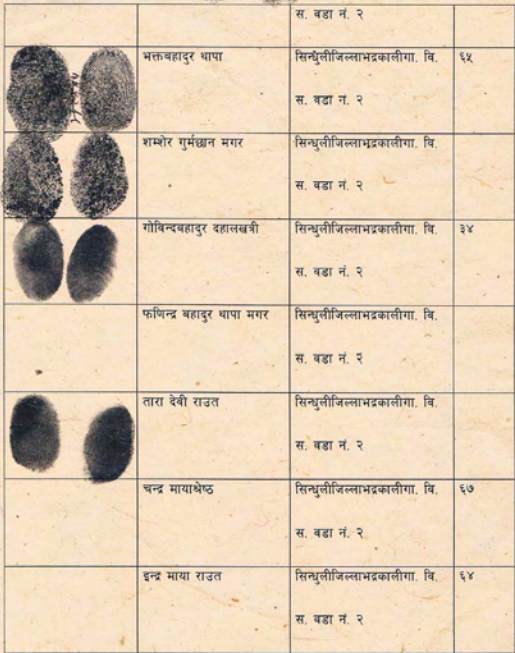 स. वडा नं. २
भक्तबहादुर थापा सिन्धुलीजिल्लाभद्रकालीगा. वि. ६५
स. वडा नं. २
शम्शेर गुर्मछान मगर सिन्धुलीजिल्लाभद्रकालीगा. वि.
स. वडा नं. २
गोविन्दबहादुर दहालखत्री सिन्धुलीजिल्लाभद्रकालीगा. वि. ३४
स. वडा नं. २
फणिन्द्र बहादुर थापा मगर सिन्धुलीजिल्लाभद्रकालीगा. वि.
स. वडा नं. २
तारा देवी राउत सिन्धुलीजिल्लाभद्रकालीगा. वि.
स. वडा नं. २
चन्द्र मायाश्रेष्ठ सिन्धुलीजिल्लाभद्रकालीगा. वि. ६७
स. वडा नं. २
इन्द्र माया राउत सिन्धुलीजिल्लाभद्रकालीगा. वि. ६४
स. वडा नं. २